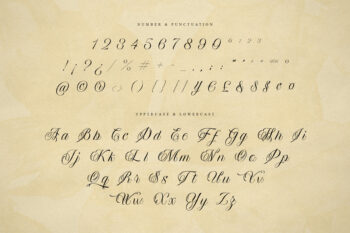 NUMBER & PUNCTUATION
1 2 3 4 5 6 7 8 9 0 0 1 2 3
! ¡ ? ¿ / % # + - _ . , : ; " " ' '
@ © ® ( ) { } [ ] ¥ € £ & $ ¢ o
UPPERCASE & LOWERCASE
Aa Bb Cc Dd Ee Ff Gg Hh Ii
Jj Kk Ll Mm Nn Oo Pp
Qq Rr Ss Tt Uu Vv
Ww Xx Yy Zz